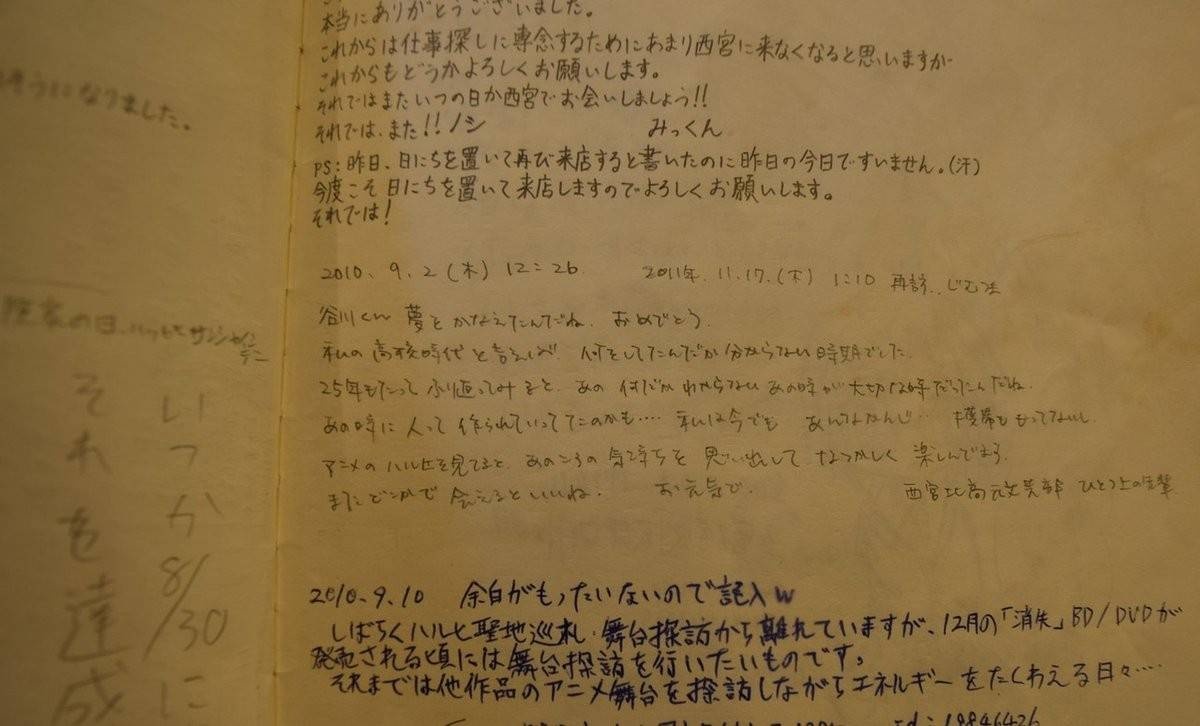 本当にありがとうございました。
これからは仕事探しに専念するためにあまり西宮に来なくなると思いますが
これからもどうかよろしくお願いします。
それではまたいつの日か西宮でお会いしましょう!!
それでは、また!!ノシ みっくん
PS:昨日、日にちを置いて再び来店すると書いたのに昨日の今日ですいません。(汗)
今度こそ日にちを置いて来店しますのでよろしくお願いします。
それでは!
2010、9.2(木) 12:26 2011年.11.17.(木) 1:10 再訪
谷川くん 夢をかなえたんだね. おめでとう.
私の高校時代と言えば 何をしてたんだか分からない時期でした.
25年もたって ふり返ってみると、あの 何だか わからない あの時が 大切な時だったんだね.
あの時に 人って 作られていってたのかも‥‥ 私は今でも あんなかんじ‥ 携帯ももってないし.
アニメのハルヒを見てると、あのころの気持ちを 思い出して なつかしく 楽しんでます.
またどこかで 会えるといいね. お元気で. 西宮北高元文芸部 ひとつ上の先輩
2010.9.10 余白がもったいないので記入w
しばらくハルヒ聖地巡礼・舞台探訪から離れていますが、12月の「消失」BD/DVDが
発売される頃には舞台探訪を行いたいものです。
それまでは他作品のアニメ舞台を探訪しながらエネルギーをたくわえる日々‥‥
id:19846426
そうになりました。
の日、
サンシャイン
デー
いつか8/30に
それを達成